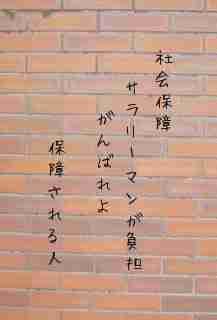 社会保障
サラリーマンが負担
がんばれよ
保障される人